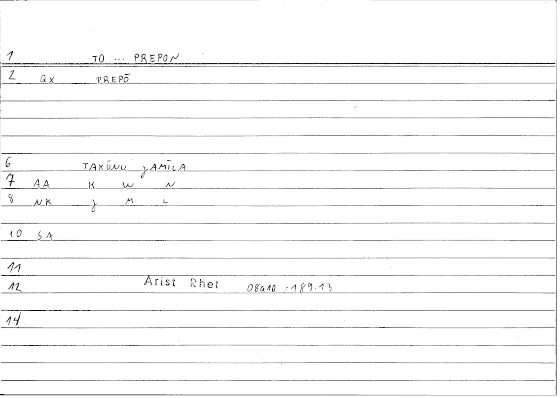 1 TO ... PREPON
2 QX PREPŌ
6 TAKŪNU ǧAMĪLA
7 AA K W N
8 NK ǧ M L
10 SA
11
12 Arist Rhet 08a10 :189.13
14